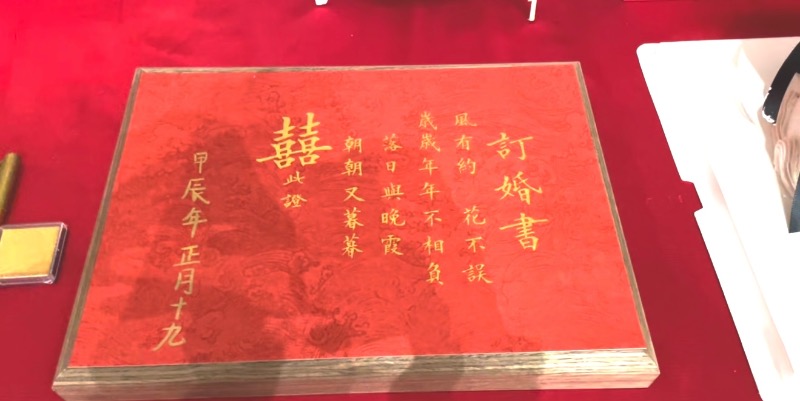 訂婚書
風有約 花不誤
歲歲年年不相負
落日與晚霞
朝朝又暮暮
囍
此證
甲辰年正月十九